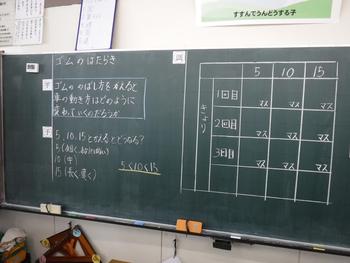 すすんでうんどうする子
ゴムのはたらき
ゴムののばし方をかえると
車の動き方はどのように
変わっていくのだろうか
予
5、10、15とかえるとどうなる?
10 (中)
5<10<15
5 10 15
きょり
1回目 マス マス マス
2回目 マス マス マス
3回目 マス マス マス